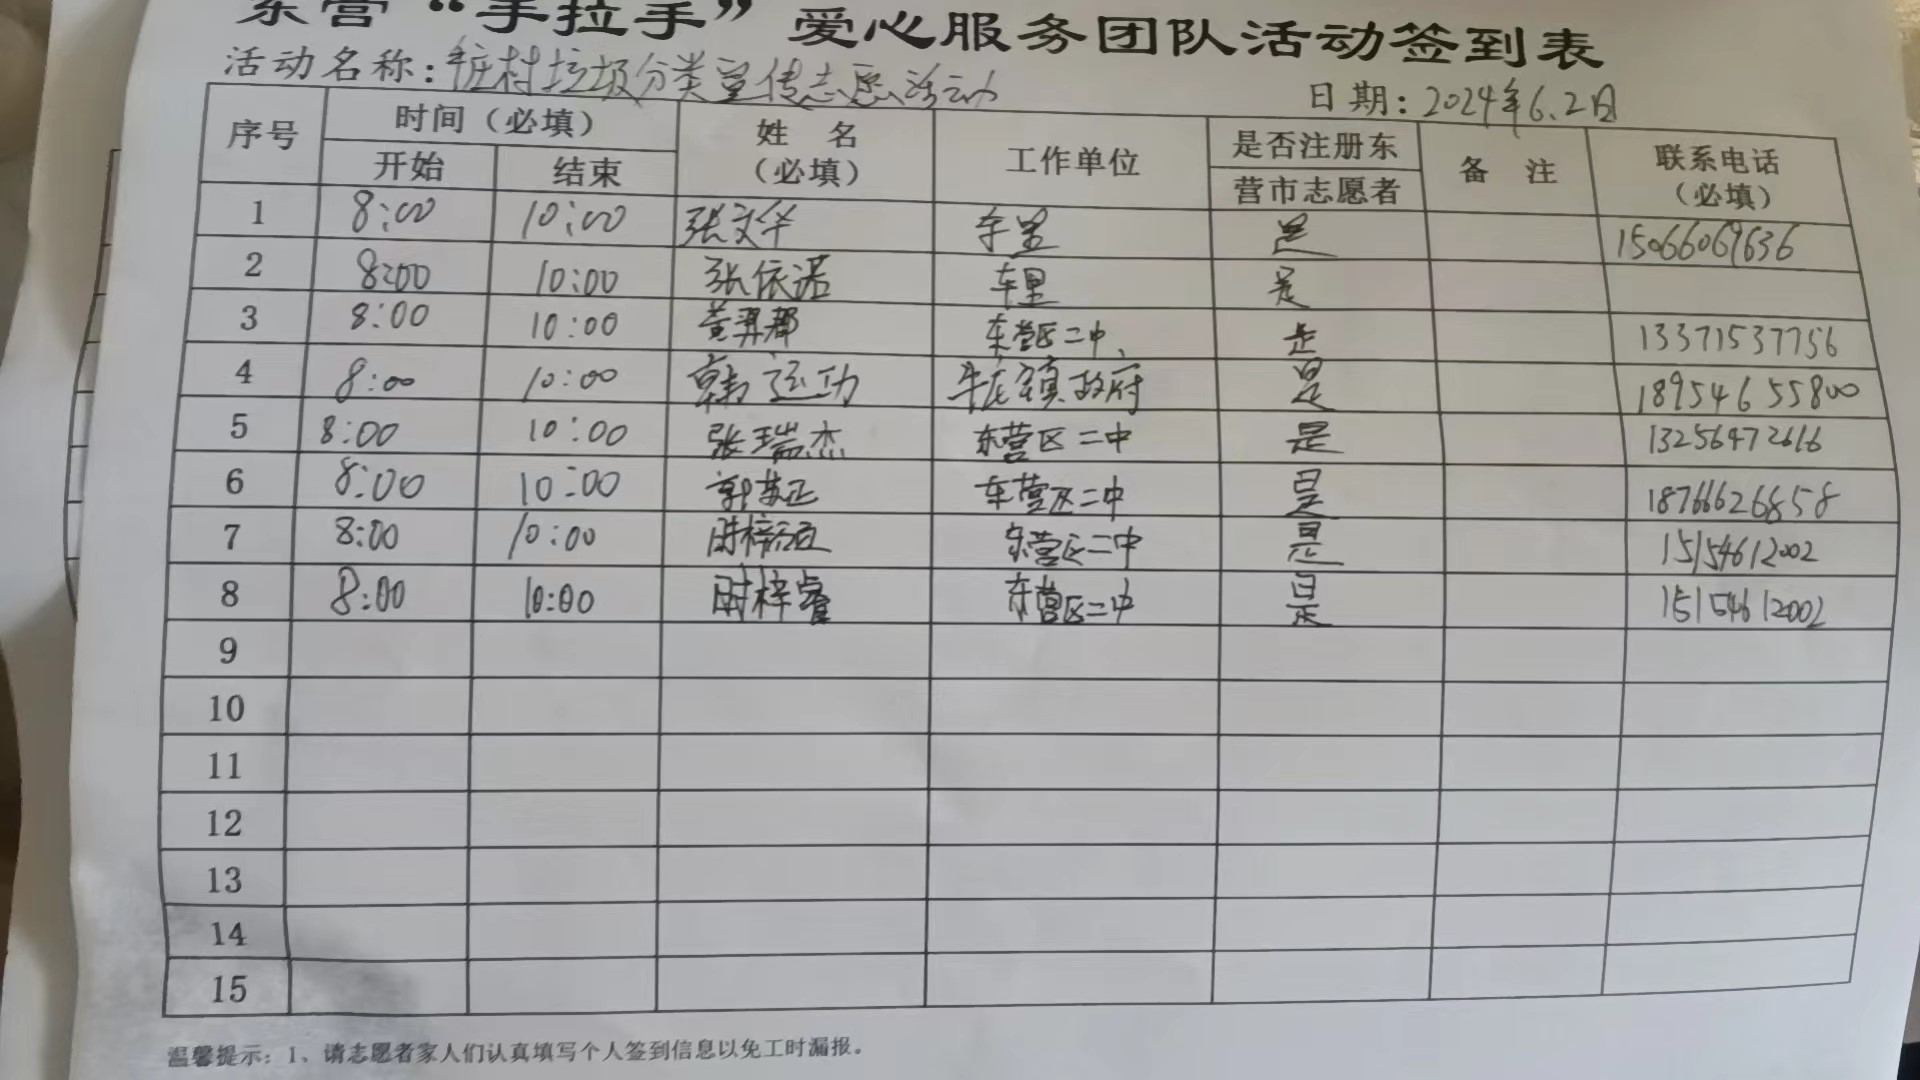 东营“手拉手”爱心服务团队活动签到表
活动名称：庄村垃圾分类宣传志愿活动
日期：2024年6.2日
序号 时间（必填） 姓 名（必填） 工作单位 是否注册东营市志愿者 备 注 联系电话（必填）
开始 结束
1 8:00 10:00 张文华 车里 是 15066069636
2 8:00 10:00 张依诺 车里 是
3 8:00 10:00 黄羿郡 东营区二中 是 13371537756
4 8:00 10:00 韩运功 牛庄镇政府 是 18954655800
5 8:00 10:00 张瑞杰 东营区二中 是 13256472616
6 8:00 10:00 东营区二中 是 18766626858
7 8:00 10:00 时梓 东营区二中 是 15154612002
8 8:00 10:00 时梓睿 东营区二中 是 15154612002
9
10
11
12
13
14
15
温馨提示：1、请志愿者家人们认真填写个人签到信息以免工时漏报。